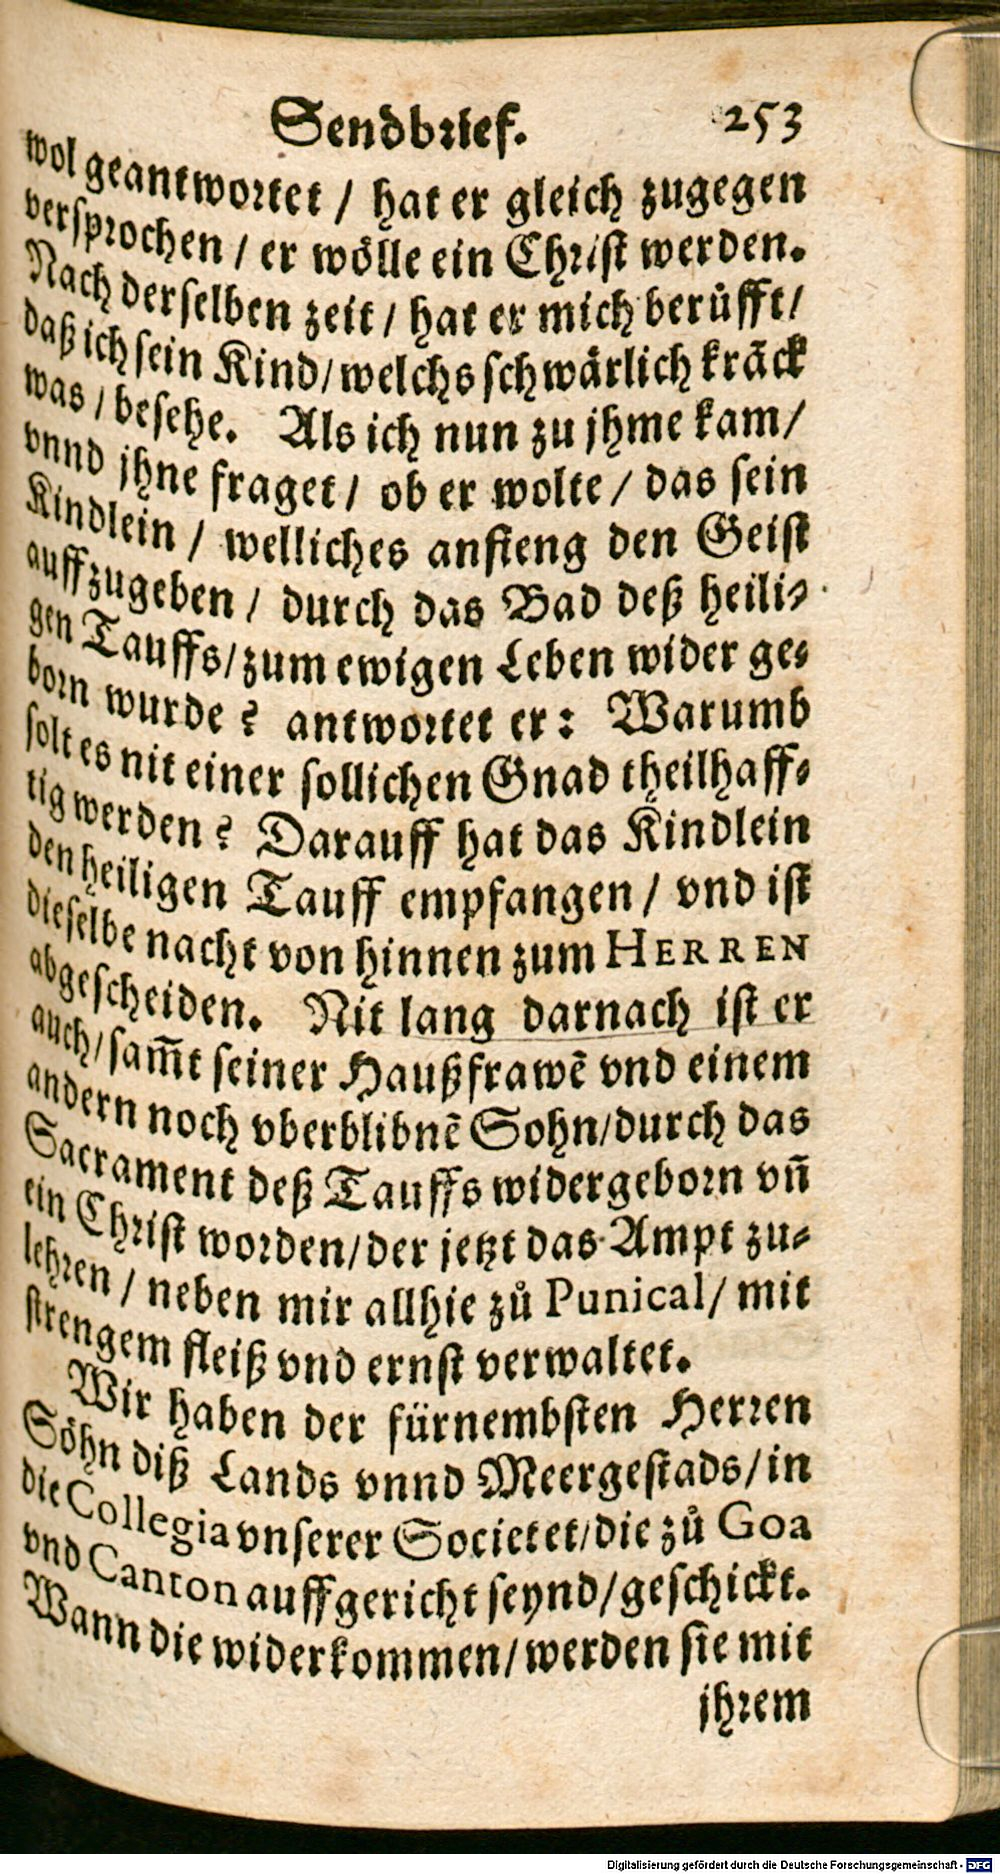 Sendbrief. 253
wol geantwortet / hat er gleich zugegen
versprochen / er wölle ein Christ werden.
Nach derselben zeit / hat er mich berůfft /
daß ich sein Kind / welchs schwärlich kräck
was / besehe. Als ich nun zu jhme kam /
vnnd jhne fraget / ob er wolte / das sein
Kindlein / welliches anfieng den Geist
auffzugeben / durch das Bad deß heili-
gen Tauffs / zum ewigen Leben wider ge-
born wurde? antwortet er: Warumb
solt es nit einer sollichen Gnad theilhaff-
tig werden? Darauff hat das Kindlein
den heiligen Tauff empfangen / vnd ist
dieselbe nacht von hinnen zum HERREN
abgescheiden. Nit lang darnach ist er
auch / sam̄t seiner Haußfrawē vnd einem
andern noch vberblibnē Sohn / durch das
Sacrament deß Tauffs widergeborn vn̄
ein Christ worden / der jetzt das Ampt zu-
lehren / neben mir allhie zů Punical / mit
strengem fleiß vnd ernst verwaltet.
Wir haben der fürnembsten Herren
Söhn diß Lands vnnd Meergestads / in
die Collegia vnserer Societet / die zů Goa
vnd Canton auffgericht seynd / geschickt.
Wann die widerkommen / werden sie mit
jhrem
Digitalisierung gefördert durch die Deutsche Forschungsgemeinschaft - DFG